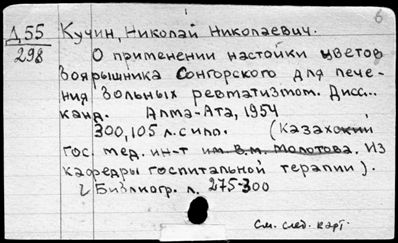 6
Д55 Кучин, Николай Николаевич.
298 О применении настойки цветов
боярышника Сонгорского для лече-
ния больных ревматизмом. Дисс...
канд. Алма-Ата, 1954
300,105 л. с илл. (Казахский
гос. мед. ин-т им. В.М. Молотова. Из
кафедры госпитальной терапии).
Библиогр. л. 275-300
См. след. карт.